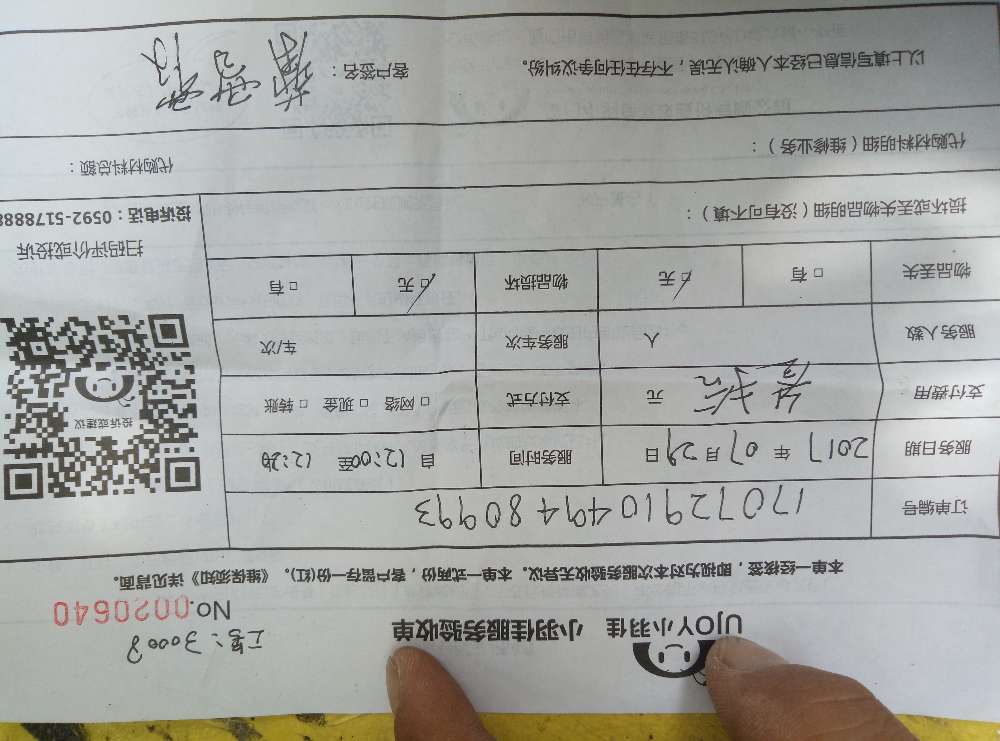 UJOY小羽佳 小羽佳服务验收单
工号: 30008
No.0020640
本单一经接签，即视为对本次服务验收无异议。本单一式两份，客户留存一份(红)。《维保须知》详见背面。
订单编号 17072910494480993
服务日期 2017年07月29日 服务时间 自12:00至12:20
支付费用 元 支付方式 □网络 □现金 □转账
服务人数 人 服务车次 车/次
物品丢失 □有 □无 物品损坏 □无 □有
投诉或建议
扫码评价或投诉
投诉电话：0592-5178888
损坏或丢失物品明细（没有可不填）：
代购材料明细（维修业务）： 代购材料总额：
以上填写信息已经本人确认无误，不存在任何争议纠纷。 客户签名：